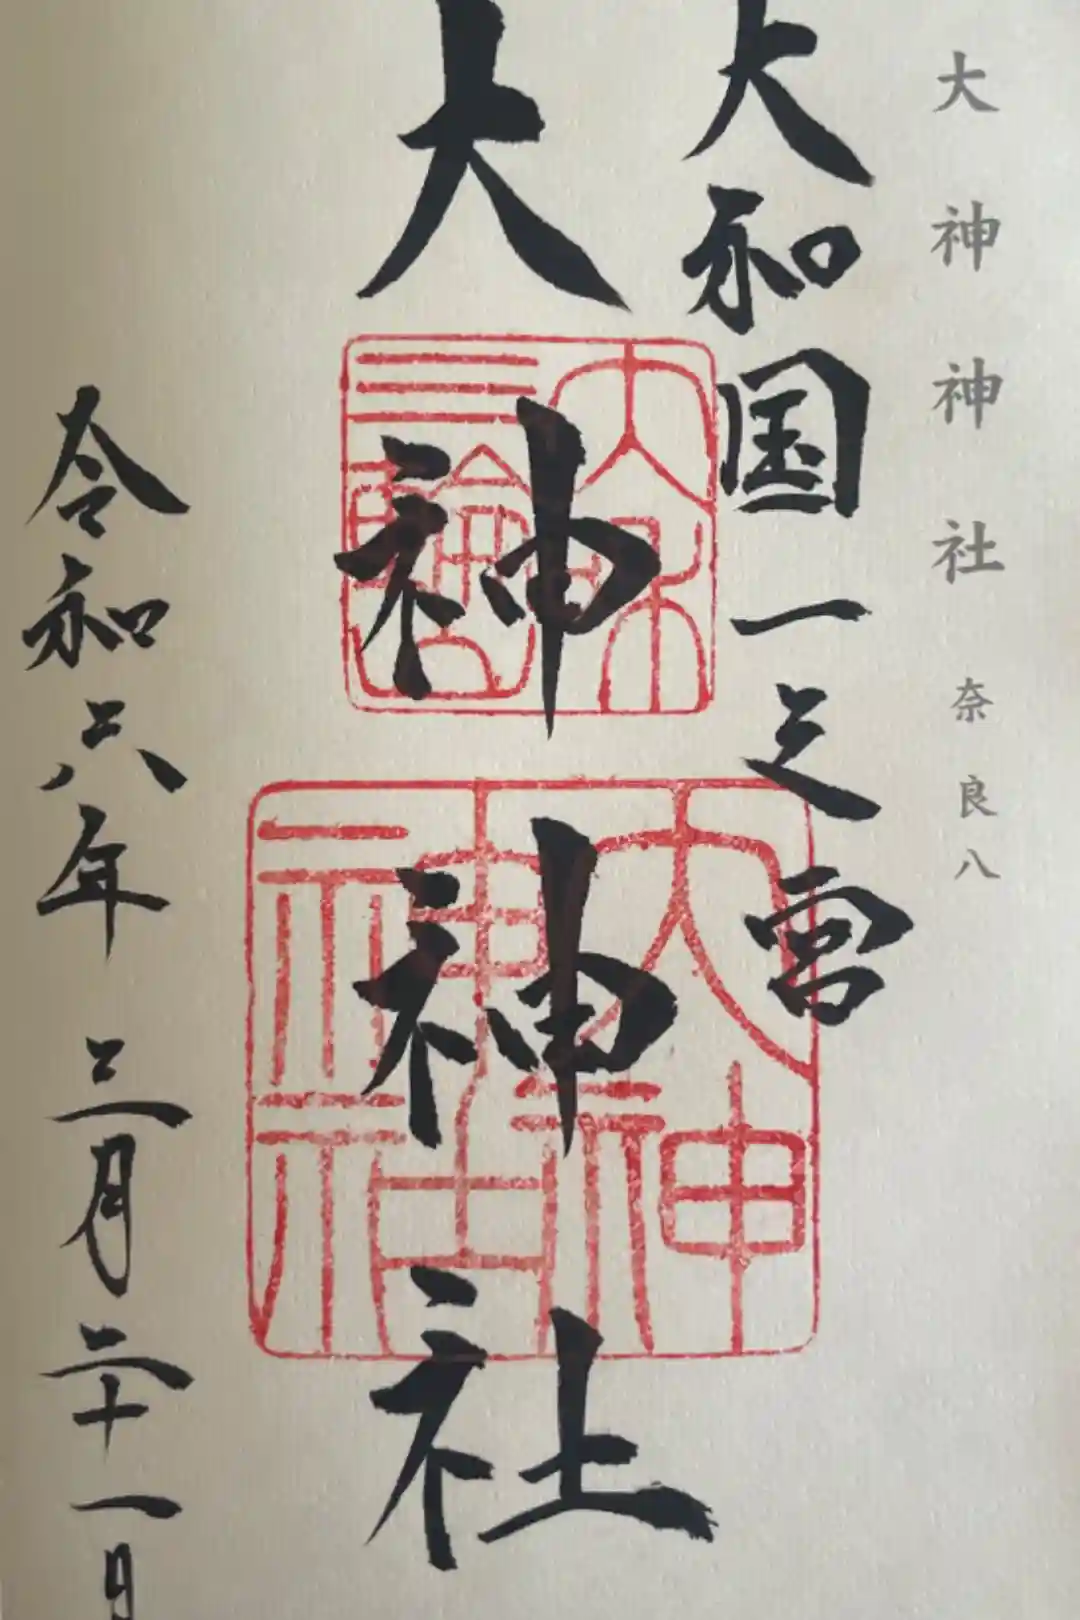 大神神社 奈良八
大和国一之宮
大神神社
大神
神社
令和六年三月二十一日